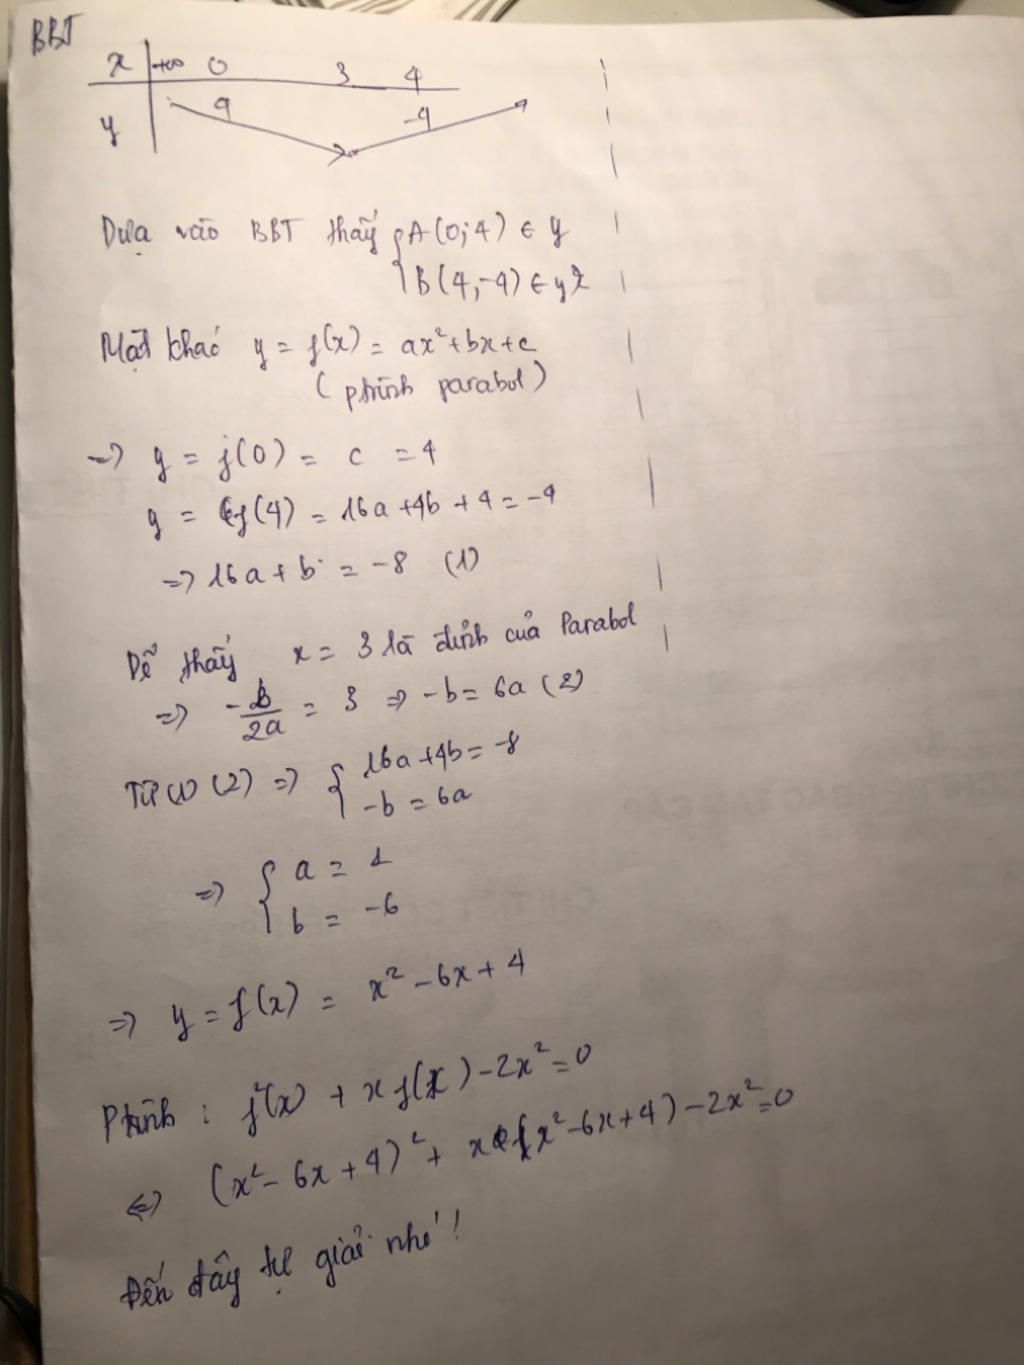 BBT
x +∞ 0 3 4
y 4 -4
Dựa vào BBT thấy { A(0;4) ∈ y
B(4;-4) ∈ y
Mặt khác y = f(x) = ax²+bx+c
(ptrình parabol)
=> y = f(0) = c = 4
y = f(4) = 16a +4b + 4 = -4
=> 16a + b = -8 (1)
Dễ thấy x = 3 là đỉnh của Parabol
=> -b/2a = 3 => -b = 6a (2)
Từ (1) (2) => { 16a +4b = -8
-b = 6a
=> { a = 1
b = -6
=> y = f(x) = x² - 6x + 4
Ptrình : f²(x) + x f(x) - 2x² = 0
<=> (x² - 6x + 4)² + x (x² - 6x + 4) - 2x² = 0
Đến đây tự giải nhé !